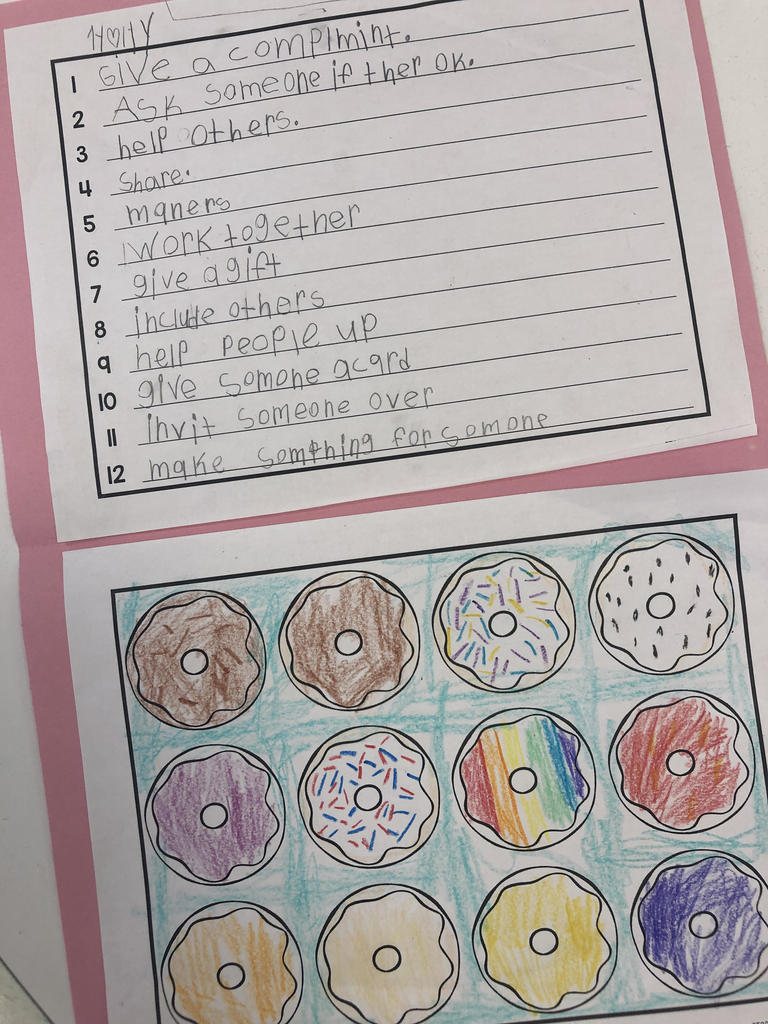 1 Give a complmint.
2 Ask someone if ther ok.
3 help others.
4 Share.
5 maners
6 Work together
7 give a gift
8 include others
9 help people up
10 give somone acard
11 invit someone over
12 make somthing for somone